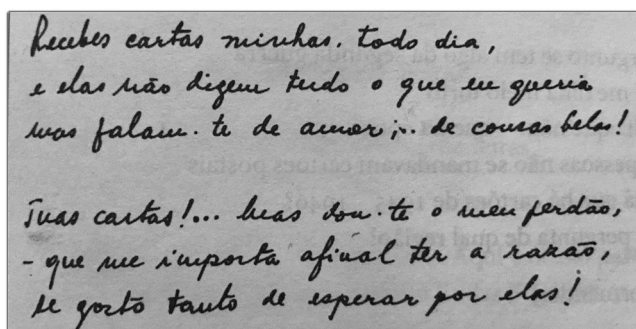 Recebes cartas minhas. todo dia,
e elas não dizem tudo o que eu queria
mas falam-te de amor;.. de cousas belas!
Tuas cartas!... Mas dou-te o meu perdão,
- que me importa afinal ter a razão,
se gosto tanto de esperar por elas!